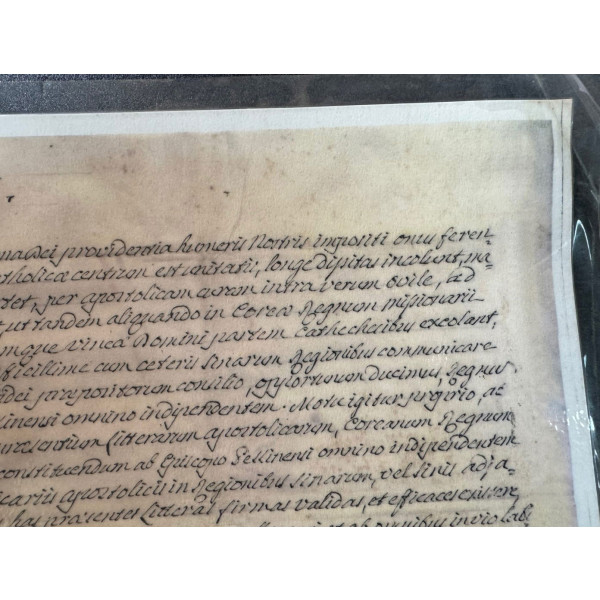 ma Dei providentia humeris Nostris impositi onus feren-
tholicæ centrum est unitatis, longe dissitas incolunt, ma-
tet, per apostolicam curam intra verum Ovile, ad
t ut tandem aliquando in Coreæ Regnum missionarii
mque vineæ Domini partem Cathechesibus excolant,
ficillime cum ceteris Sinarum Regionibus communicare
idei præpositorum consilio, opportunum ducimus, Regnum
inensi omnino independentem. Motu igitur proprio, ac
præsentium Litterarum apostolicarum, Coreanum Regnum
constituendum ab Episcopo Pekinensi omnino independentem
icariis apostolicis in Regionibus Sinarum, vel Sinis adja-
has præsentes Litteras firmas validas, et efficaces existere,
et ab omnibus inviolabi